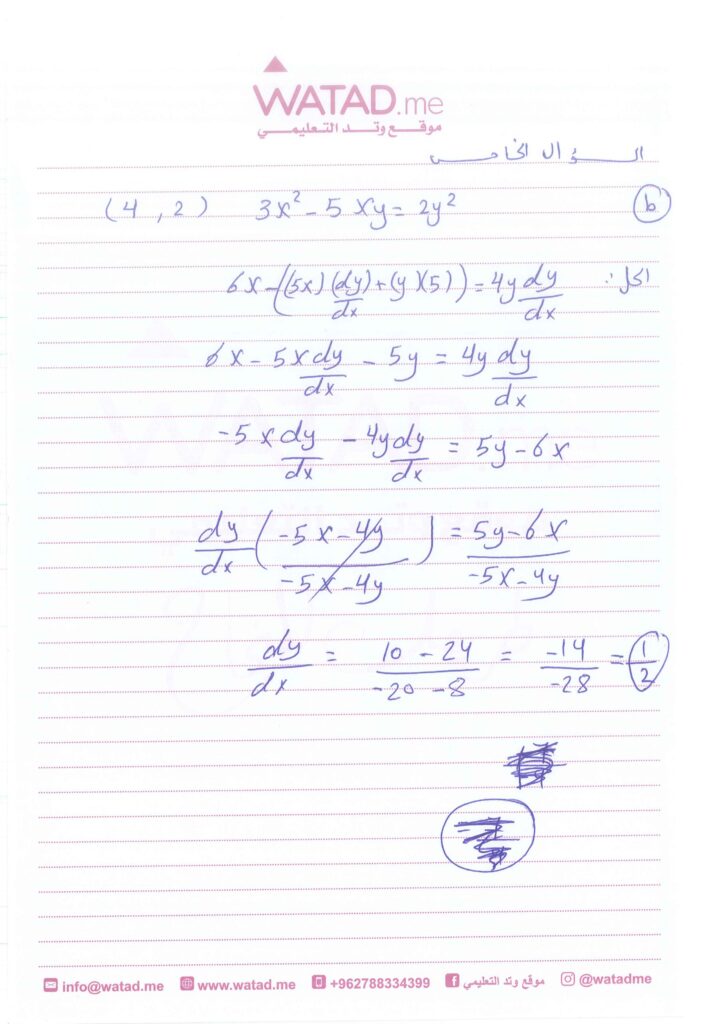 WATAD.me
موقع وتد التعليمي
السؤال الخامس
(4 , 2) 3x² - 5xy = 2y² (b
الحل: 6x - ((5x)(dy/dx) + (y)(5)) = 4y dy/dx
6x - 5x dy/dx - 5y = 4y dy/dx
-5x dy/dx - 4y dy/dx = 5y - 6x
dy/dx ( -5x - 4y / -5x - 4y ) = 5y - 6x / -5x - 4y
dy/dx = 10 - 24 / -20 - 8 = -14 / -28 = 1/2
info@watad.me www.watad.me +962788334399 موقع وتد التعليمي @watadme